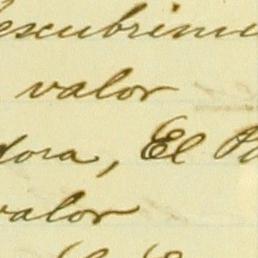 escubrimi
valor
dora, El
valor